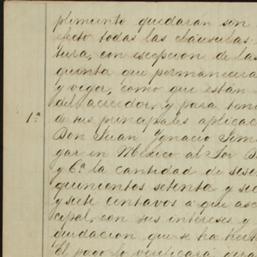 plimiento quedaran sin
efecto todas las cláusulas
tura, con escepcion de las
quinta que permanecera
y vigor, como que están
del acreedor, y para tener
de sus principales aplicac
1ª Don Juan Ignacio Jim
gar en México al Sor D
y Cª la cantidad de sese
quinientos setenta y sei
y siete centavos a que asc
cipal, con sus intereses y
quidacion, que se ha hech
El pago lo verificará